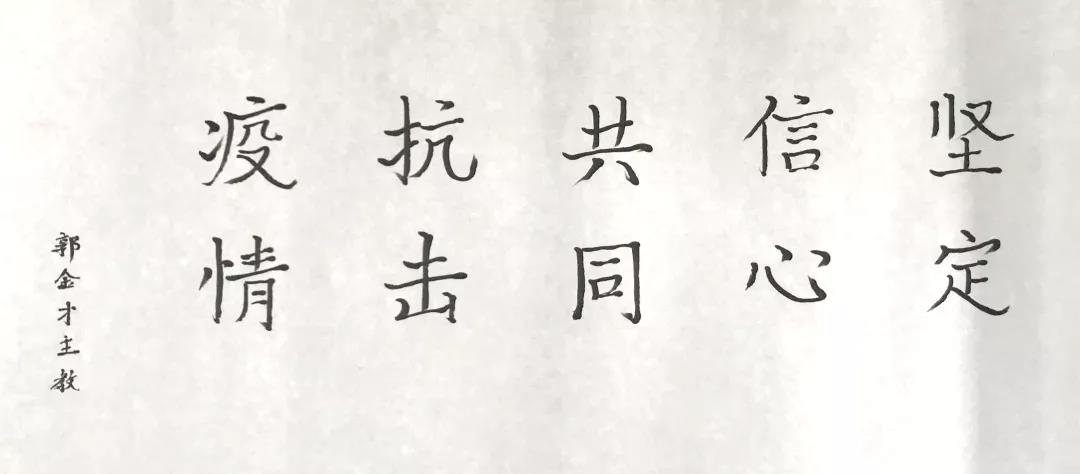 坚定
信心
共同
抗击
疫情
郭金才主教